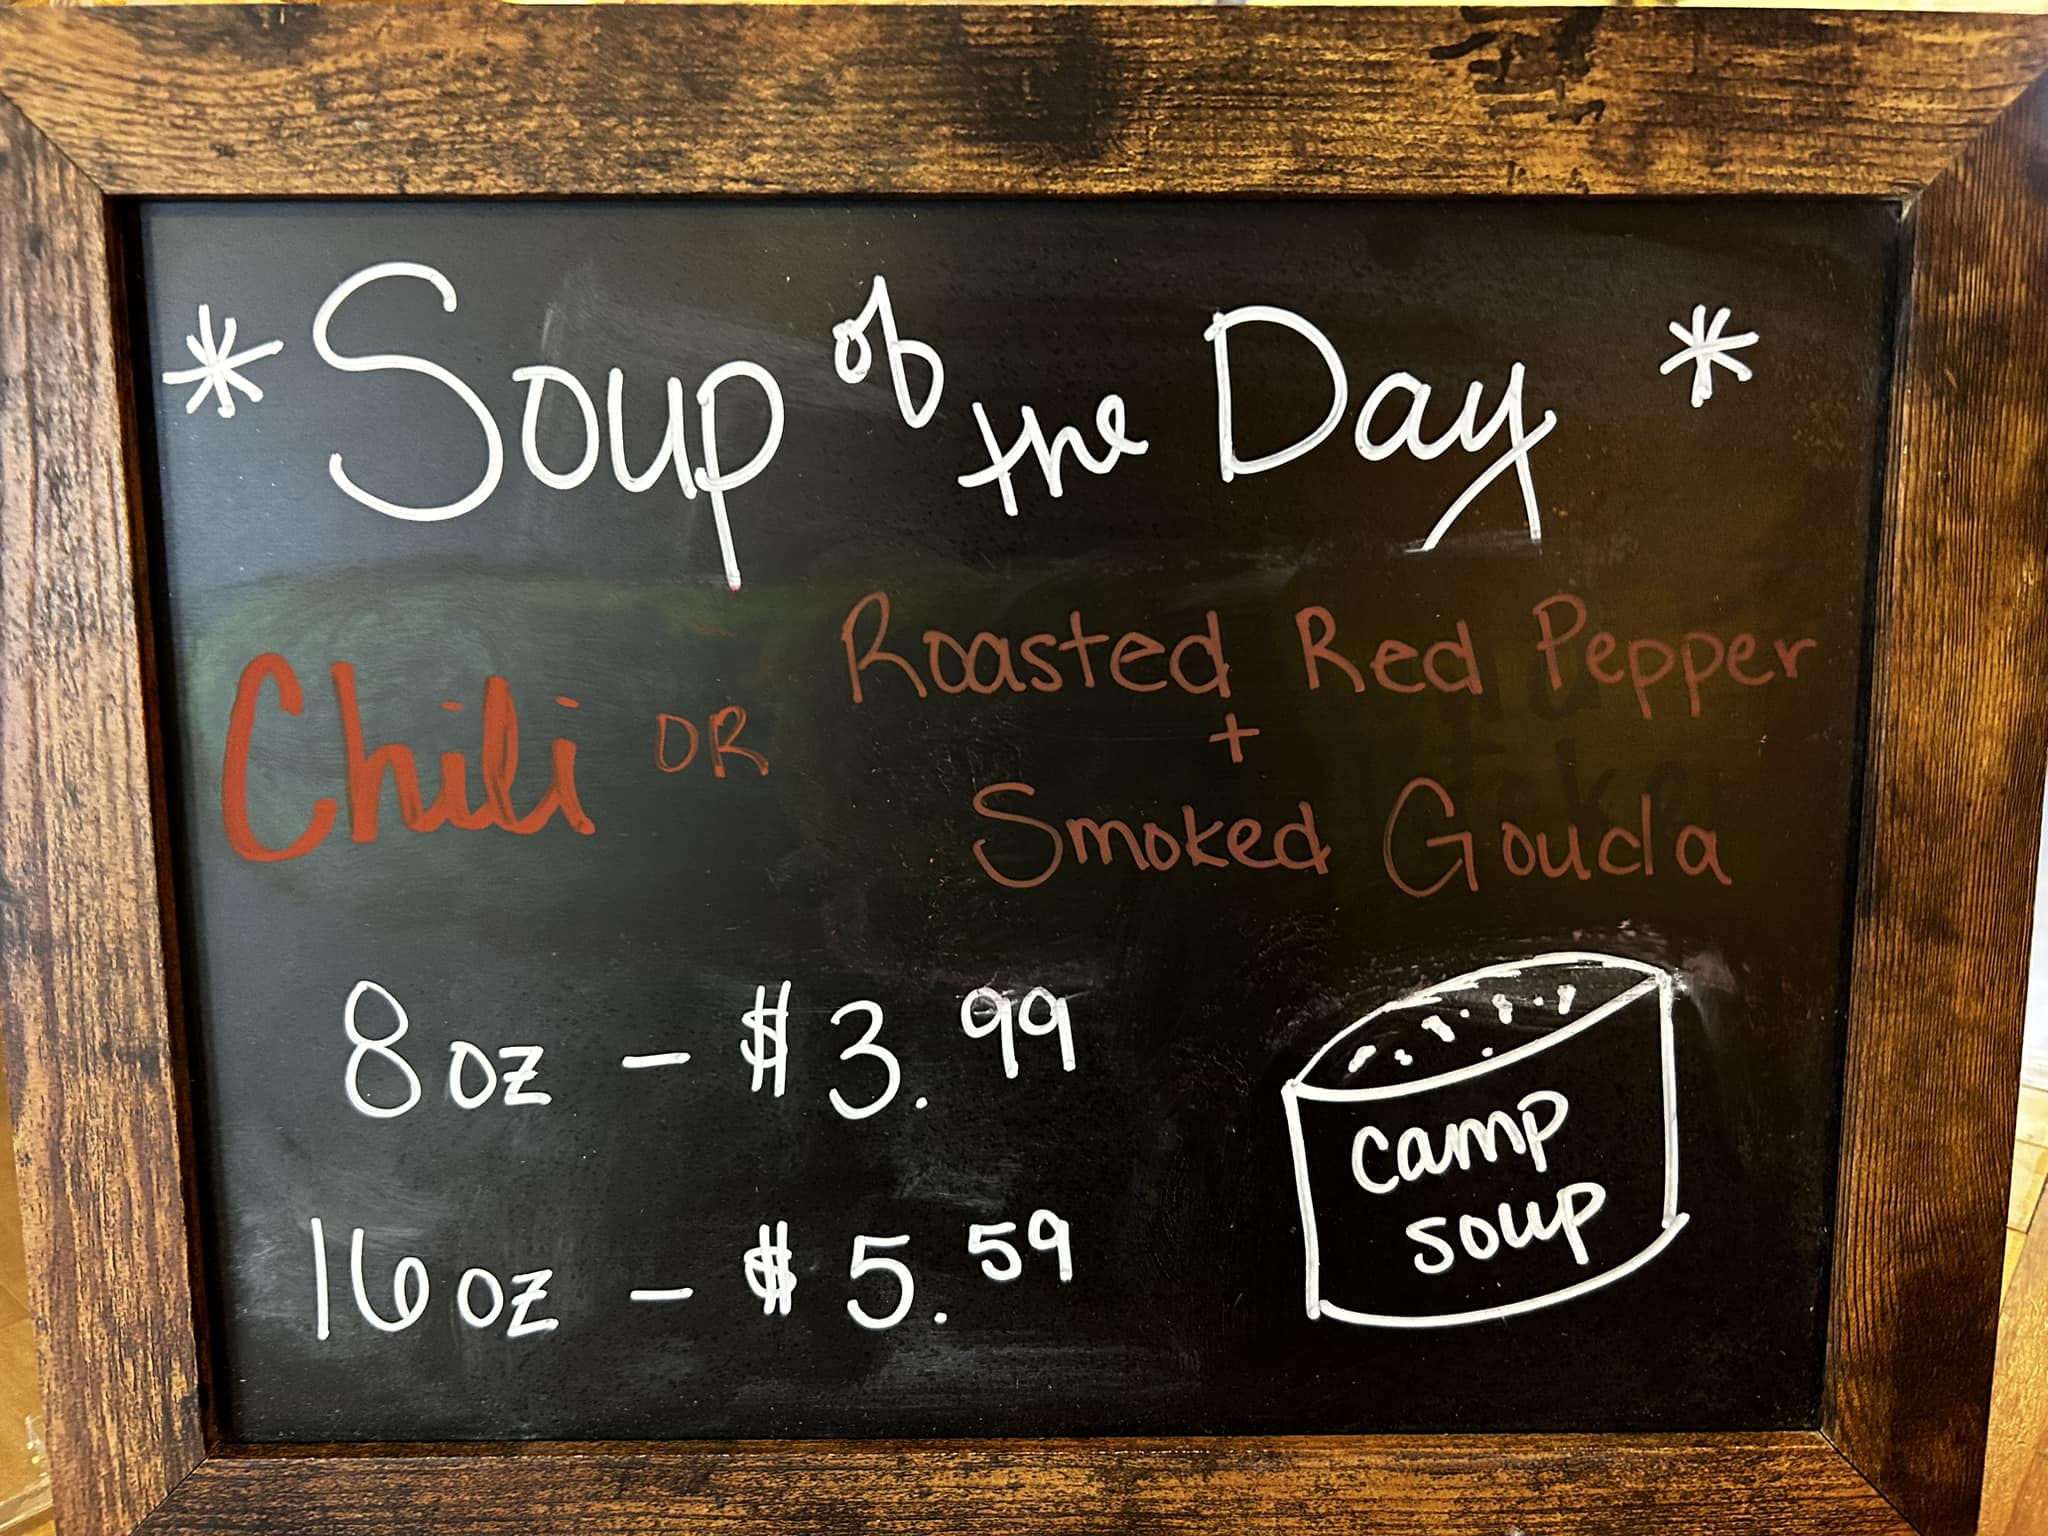 * Soup of the Day *
Chili OR Roasted Red Pepper
+
Smoked Gouda
8 oz - $3.99
16 oz - $5.59
camp
soup